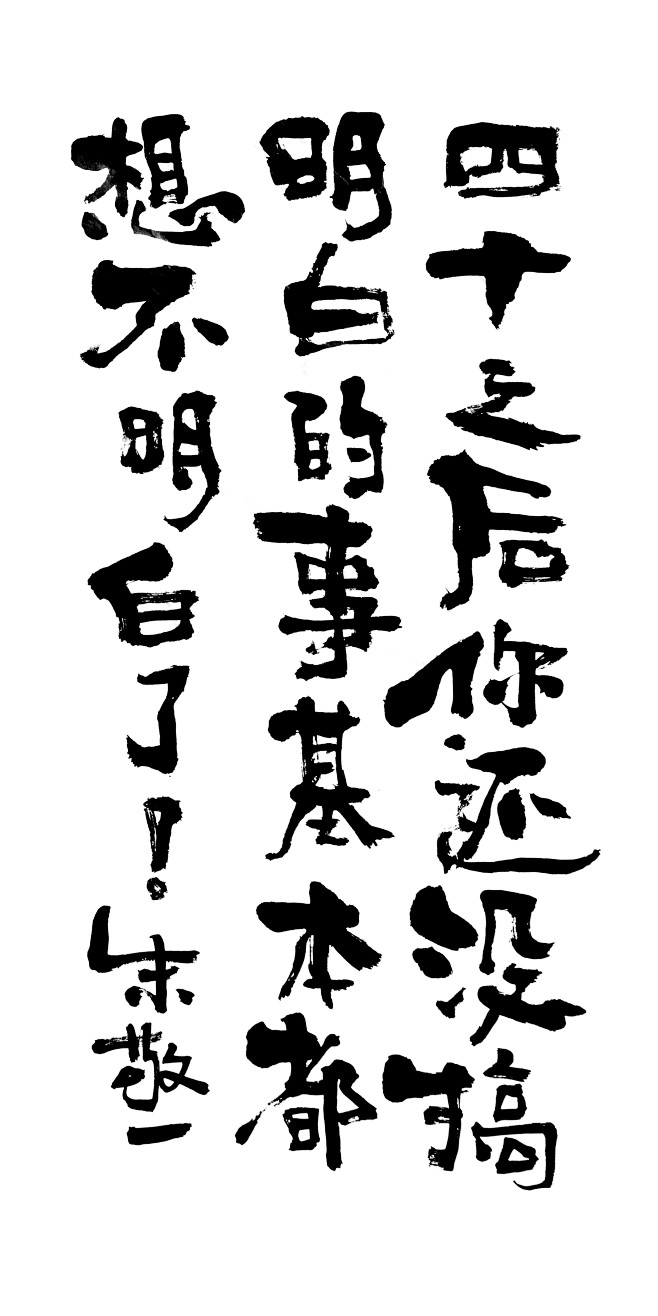 四十之后你还没搞
明白的事基本都
想不明白了！朱敬一